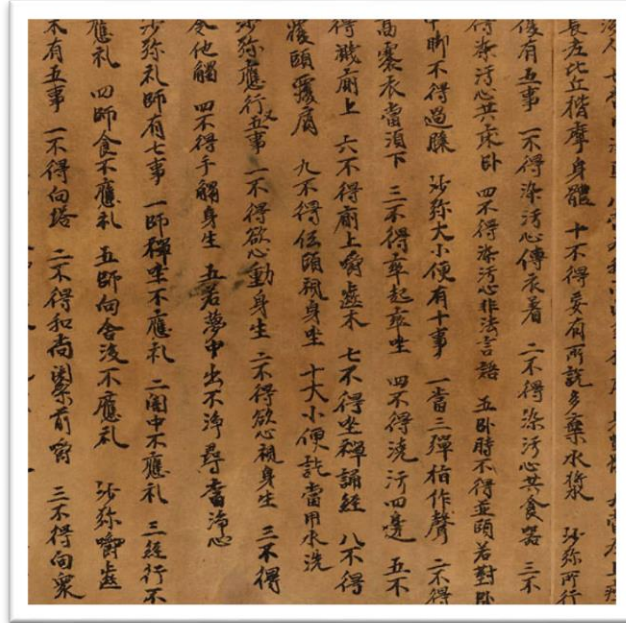 長老比丘楷摩身體 十不得妄有所説多棄水漿 沙弥所行
復有五事 一不得染汚心傳衣著 二不得染汚心共食器 三不
得染汚心共床卧 四不得染汚心非法言語 五卧時不得並頭若對卧
脚不得過膝 沙弥大小便有十事 一當三彈指作聲 二不得
高褰衣當漸下 三不得卒起卒坐 四不得澆汚四邊 五不
得濺廁上 六不得廁上嚼齒木 七不得坐禪誦經 八不得
頭覆肩 九不得伍頭視身坐 十大小便訖當用水洗
沙弥應行五事 一不得欲心動身生 二不得欲心視身生 三不得
令他觸 四不得手觸身生 五若夢中出不淨尋當淨心
沙弥礼師有七事 一師禪坐不應礼 二闇中不應礼 三経行不
應礼 四師食不應礼 五師向舍後不應礼 沙弥嚼齒
木有五事 一不得向塔 二不得和尚闍梨前嚼 三不得向衆